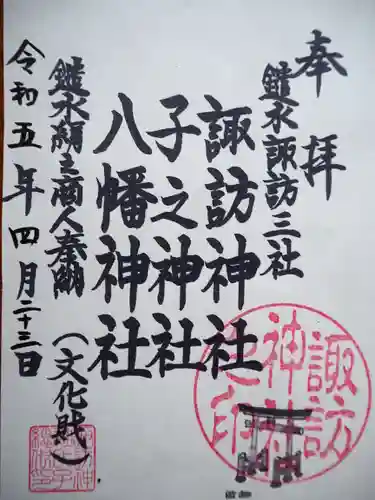 奉拝
鑓水諏訪三社
諏訪神社
子之神社
八幡神社
鑓水絹之商人奉納
(文化財)
令和五年四月二十三日
諏訪
神社